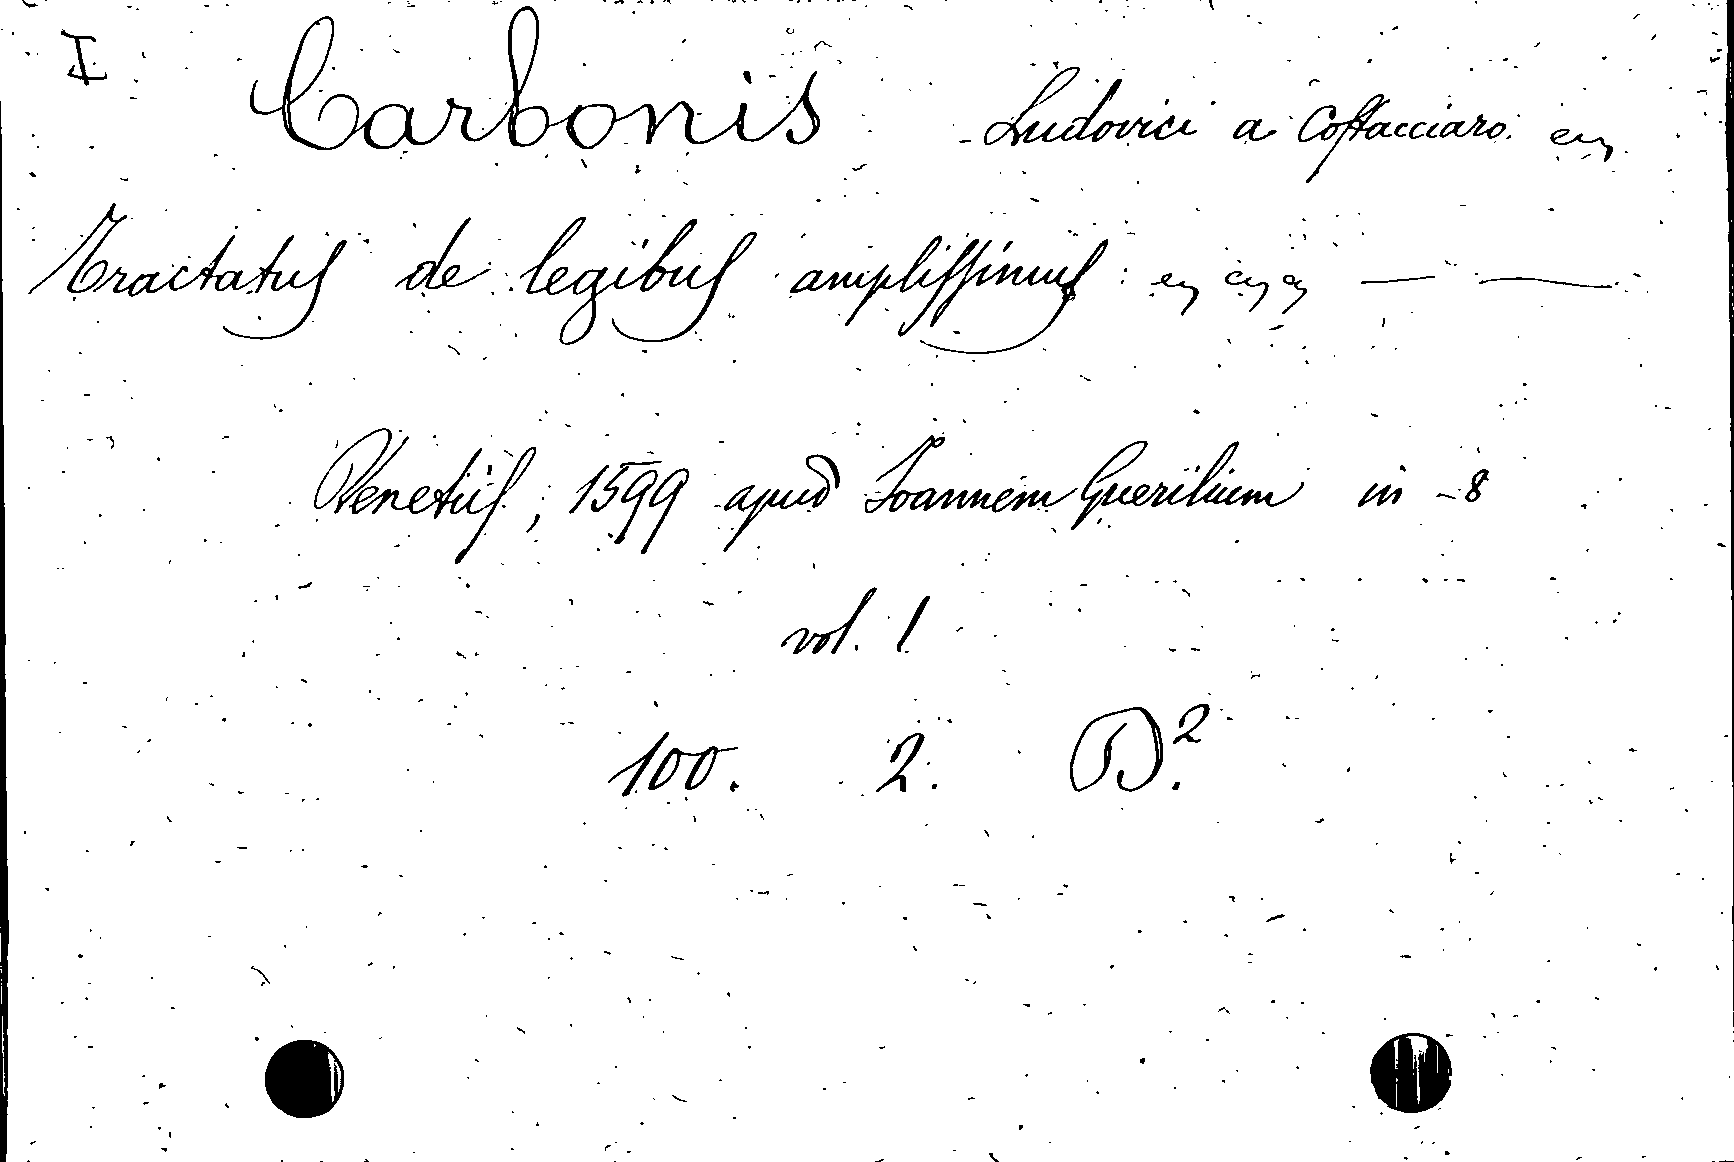 I Carbonis Ludovici a Costacciaro.
Tractatus de legibus amplissimus:
Venetiis, 1599 apud Ioannem Guerilium in -8
vol. 1
100. 2. B.²